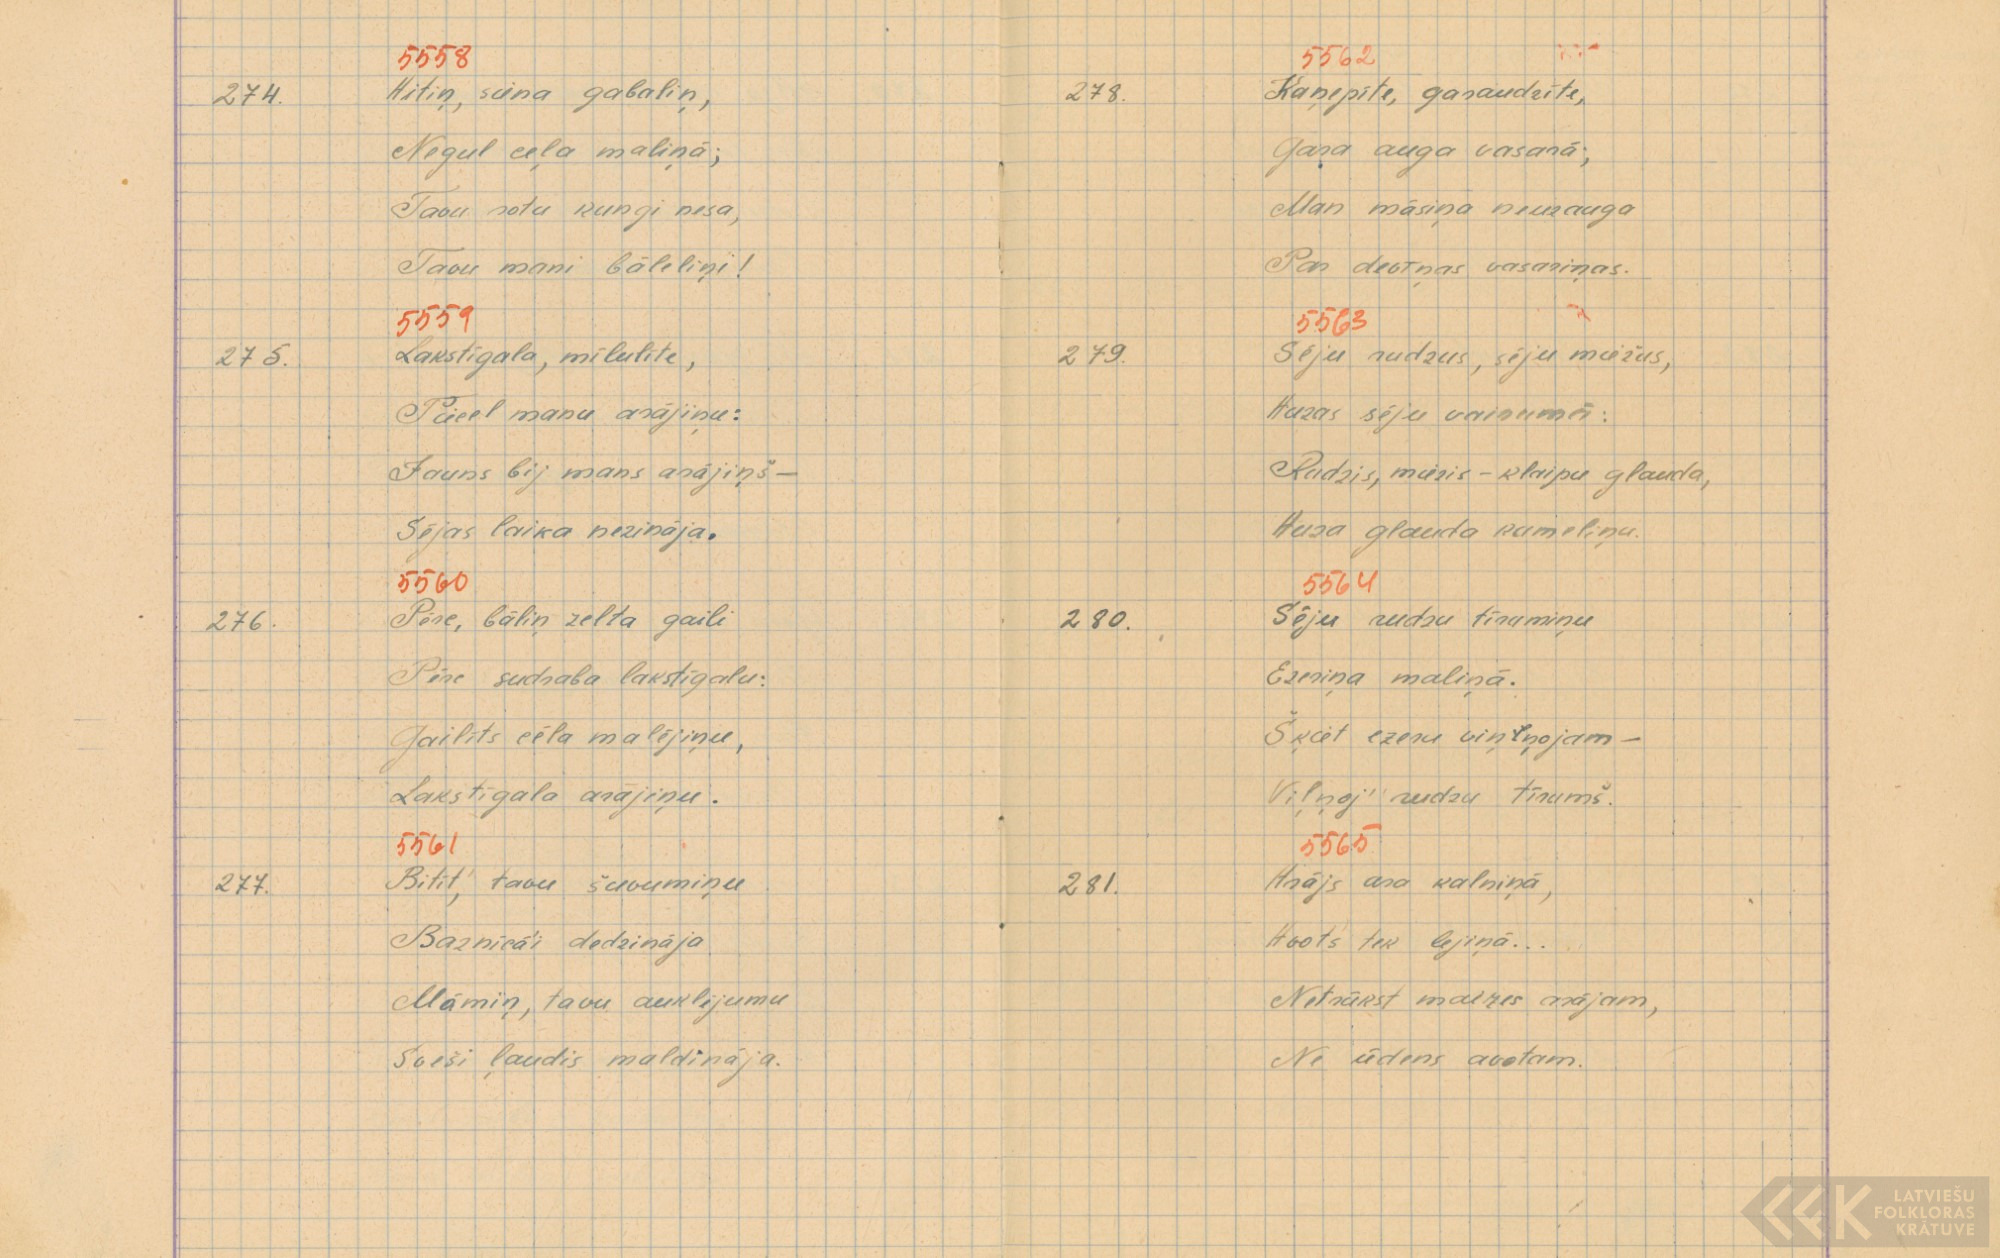 5558
274. Aitiņ, siena gabaliņ,
Negul ceļa maliņā;
Tavu rotu kungi nesa,
Tavu mani bāleliņi!
5559
275. Lakstīgala, mīlulīte,
Pieceļ manu arājiņu:
Jauns bij mans arājiņš —
Sējas laika nezināja.
5560
276. Pērc, bāliņ zelta gaili
Pērc sudraba lakstīgalu:
Gailīts cēla malējiņu,
Lakstīgala arājiņu.
5561
277. Bitīt, tavu šuvumiņu
Baznīcā'i dedzināja
Māmiņ, tavu auklējumu
Sveši ļaudis maldināja.
5562
278. Kaņepīte, garaudzīte,
Gara auga vasarā;
Man māsiņa neuzauga
Par deviņas vasariņas.
5563
279. Sēju rudzus, sēju miežus,
Auzas sēju vairumā:
Rudzis, miezis – klaipu glauda,
Auza glauda kumeliņu.
5564
280. Sēju rudzu tīrumiņu
Ezeriņa maliņā.
Šķiet ezeru viņļņojam —
Viļņoj' rudzu tīrumš.
5565
281. Arājs ara kalniņā,
Avots tek lejiņā...
Netrūkst maizes arājam,
Ne ūdens avotam.
LATVIEŠU
FOLKLORAS
KRĀTUVE